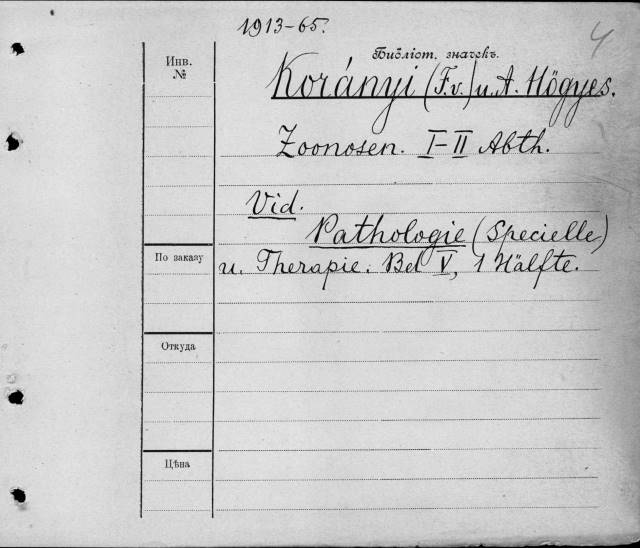 1913-65.
4
Библіот. значекъ.
Инв.
№
Korányi (F.v.) u. A. Högyes.
Zoonosen. I-II Abth.
Vid.
Pathologie (Specielle)
По заказу
u. Therapie. Bd V, 1 Hälfte.
Откуда
Цѣна